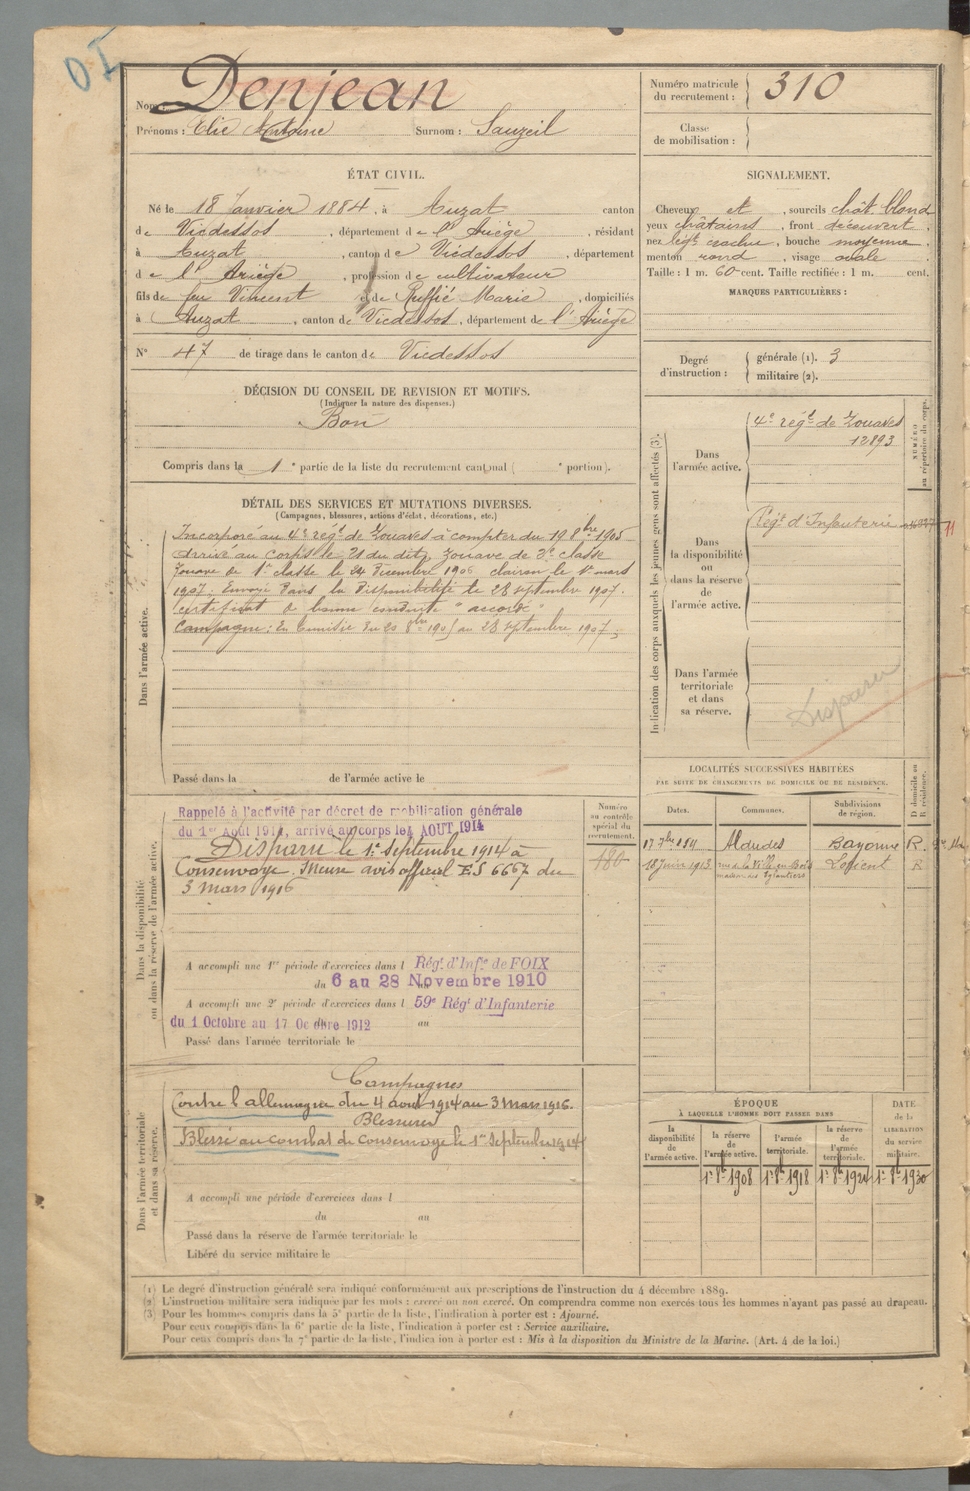 Nom : Denjean
Prénoms : Elie Antoine Surnom : Sauzeil
Numéro matricule du recrutement : 310
Classe de mobilisation :
ÉTAT CIVIL.
Né le 18 Janvier 1884, à Auzat canton
de Vicdessos, département de l'Ariège, résidant
à Auzat, canton de Vicdessos, département
de l'Ariège, profession de cultivateur
fils de feu Vincent et de Ruffié Marie, domiciliés
à Auzat, canton de Vicdessos, département de l'Ariège
N° 47 de tirage dans le canton de Vicdessos
SIGNALEMENT.
Cheveux et, sourcils chât. blond
yeux châtains, front découvert,
nez, bouche moyenne,
menton rond, visage ovale
Taille : 1 m. 60 cent. Taille rectifiée : 1 m. cent.
MARQUES PARTICULIÈRES :
Degré d'instruction : générale (1). 3
militaire (2).
DÉCISION DU CONSEIL DE REVISION ET MOTIFS.
(Indiquer la nature des dispenses.)
Bon
Compris dans la 1e partie de la liste du recrutement cantonal ( e portion).
DÉTAIL DES SERVICES ET MUTATIONS DIVERSES.
(Campagnes, blessures, actions d'éclat, décorations, etc.)
Dans l'armée active.
Incorporé au 4e régt de Zouaves à compter du 19 8bre 1905
Arrivé au corps le 21 du dit, Zouave de 2e classe
Zouave de 1re classe le 24 Décembre 1906 clairon le 1er mars
1907; Envoyé dans la Disponibilité le 28 septembre 1907.
Certificat de bonne conduite "accordé"
Campagne: En Tunisie du 20 8bre 1905 au 28 septembre 1907;
Passé dans la de l'armée active le
Indication des corps auxquels les jeunes gens sont affectés (3).
NUMÉRO au répertoire du corps.
Dans l'armée active.
4e régt de Zouaves
12893
Dans la disponibilité ou dans la réserve de l'armée active.
Régt d'Infanterie
Dans l'armée territoriale et dans sa réserve.
Disparu
LOCALITÉS SUCCESSIVES HABITÉES
PAR SUITE DE CHANGEMENTS DE DOMICILE OU DE RÉSIDENCE.
Dates. Communes. Subdivisions de région. D domicile ou R résidence.
Aldudes Bayonne R.
18 Juin 1913 Lorient R
Dans la disponibilité ou dans la réserve de l'armée active.
Numéro au contrôle spécial du recrutement.
180
Rappelé à l'activité par décret de mobilisation générale
du 1er Août 1914, arrivé au corps le 4 AOUT 1914
Disparu le 1er septembre 1914 à
Consenvoye. Meuse avis officiel ES 6667 du
3 mars 1916
A accompli une 1re période d'exercices dans l Régt d'Infie de FOIX
du 6 au 28 Novembre 1910
A accompli une 2e période d'exercices dans l 59e Régt d'Infanterie
du 1 Octobre au 17 Octobre 1912 au
Passé dans l'armée territoriale le
Dans l'armée territoriale et dans sa réserve.
Campagnes
Contre l'allemagne du 4 août 1914 au 3 Mars 1916.
Blessures
Blessé au combat de Consenvoye le 1er Septembre 1914
A accompli une période d'exercices dans l
du au
Passé dans la réserve de l'armée territoriale le
Libéré du service militaire le
ÉPOQUE
À LAQUELLE L'HOMME DOIT PASSER DANS
DATE de la LIBÉRATION du service militaire.
la disponibilité de l'armée active. la réserve de l'armée active. l'armée territoriale. la réserve de l'armée territoriale.
1er 8bre 1908 1er 8bre 1918 1er 8bre 1924 1er 8bre 1930
(1) Le degré d'instruction générale sera indiqué conformément aux prescriptions de l'instruction du 4 décembre 1889.
(2) L'instruction militaire sera indiquée par les mots : exercé ou non exercé. On comprendra comme non exercés tous les hommes n'ayant pas passé au drapeau.
(3) Pour les hommes compris dans la 5e partie de la liste, l'indication à porter est : Ajourné.
Pour ceux compris dans la 6e partie de la liste, l'indication à porter est : Service auxiliaire.
Pour ceux compris dans la 7e partie de la liste, l'indication à porter est : Mis à la disposition du Ministre de la Marine. (Art. 4 de la loi.)